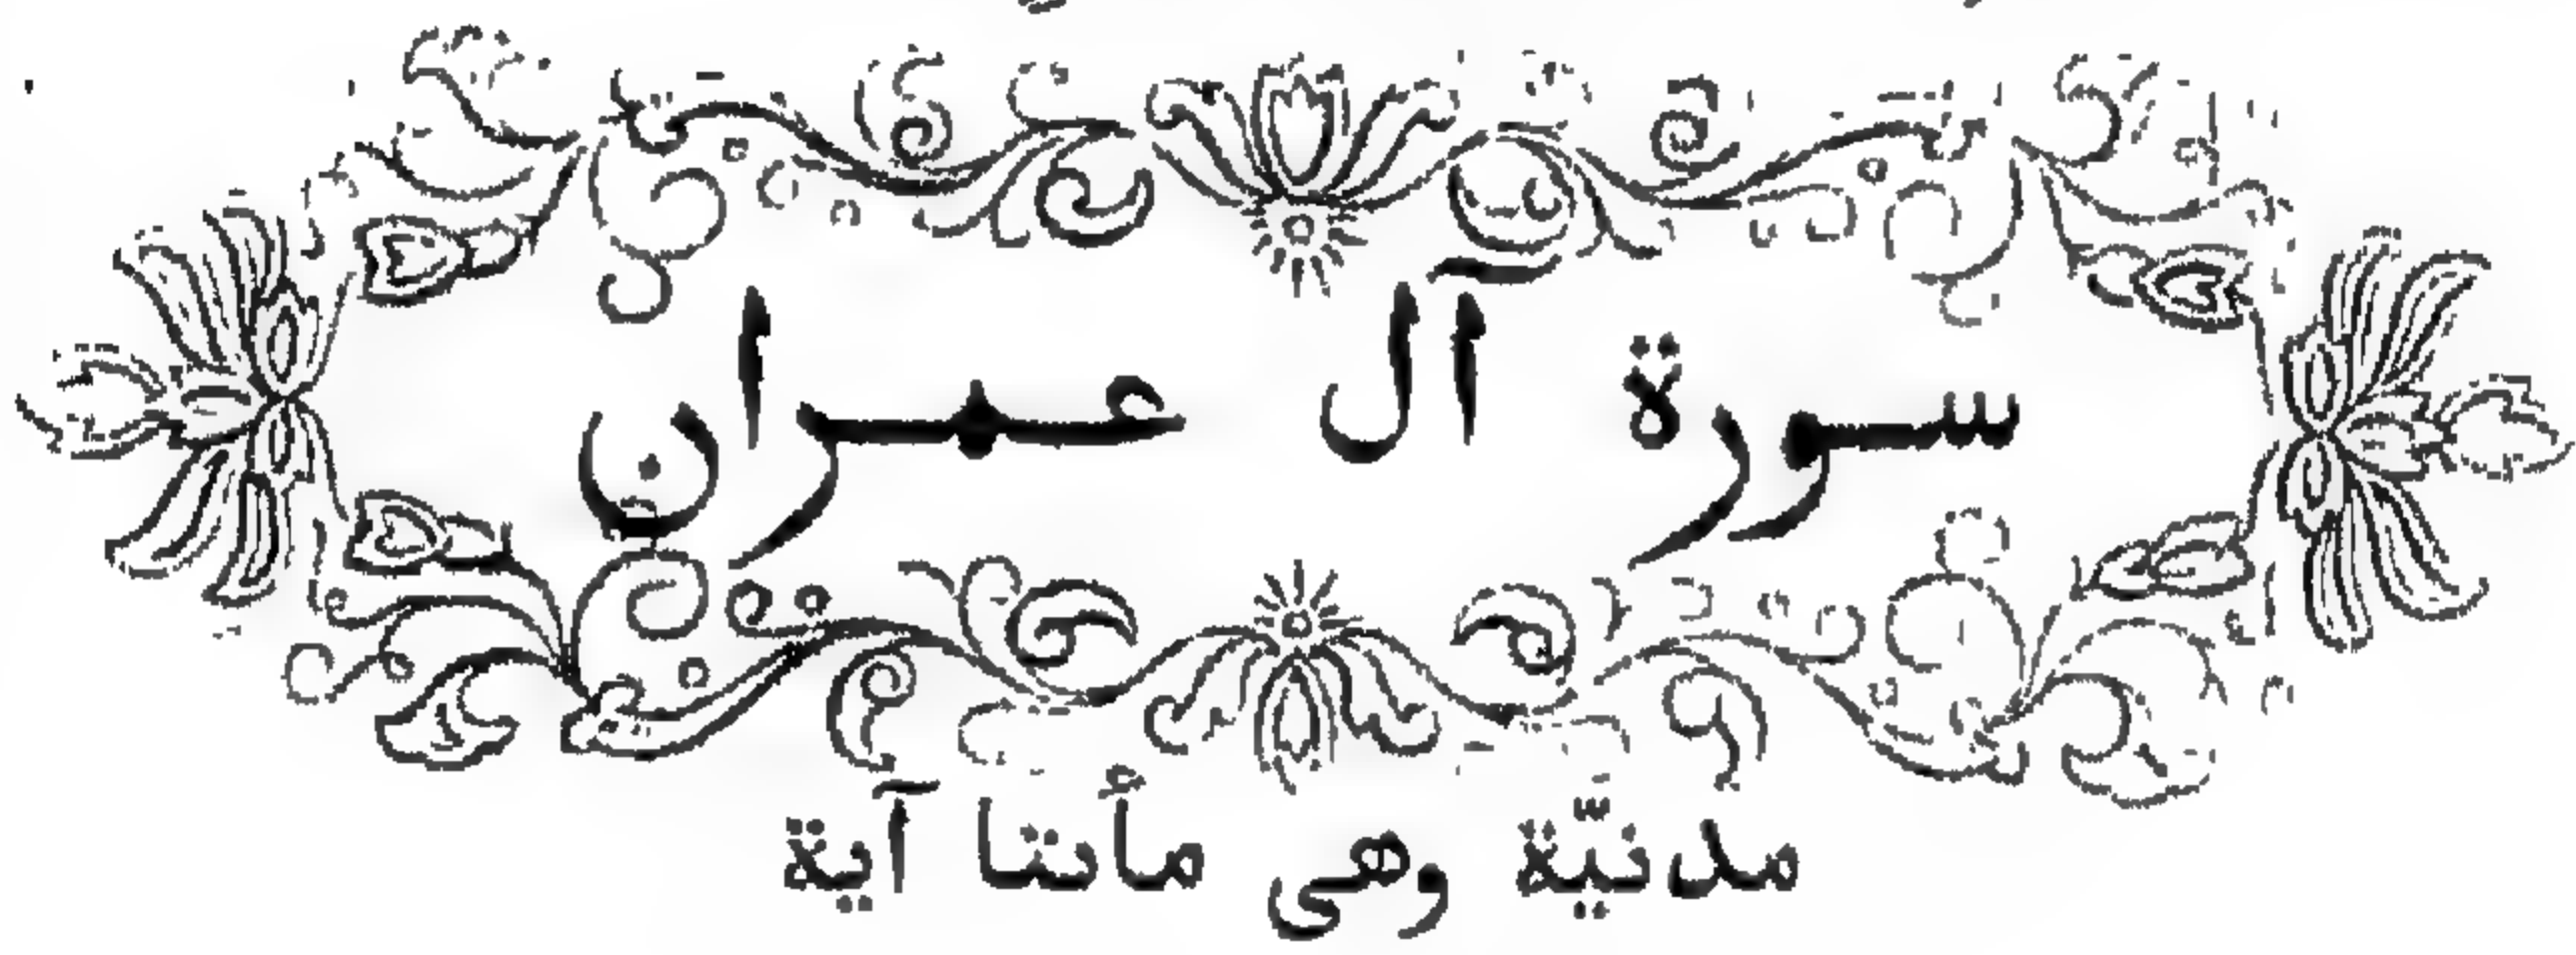 سورة آل عمران
مدنيّة وهى مأنتا آية